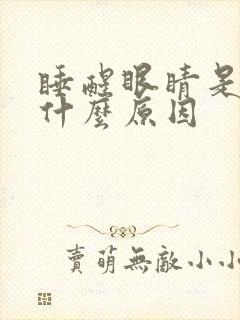 睡醒眼睛是
什麼原因
賣萌無敵小小